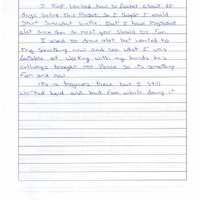 I Just learned how to Crochet about 30
days before this Project. So I thought I would
Start Somewhat simple but I have Progressed
alot since then so next year should be fun.
I used to draw alot but wanted to
try Something new and see what I was
Capable of. Working with my hands has
always brought me Peace so its something
Fun and new.
Its a beginners Piece but I Still
worked hard and had fun while doing it